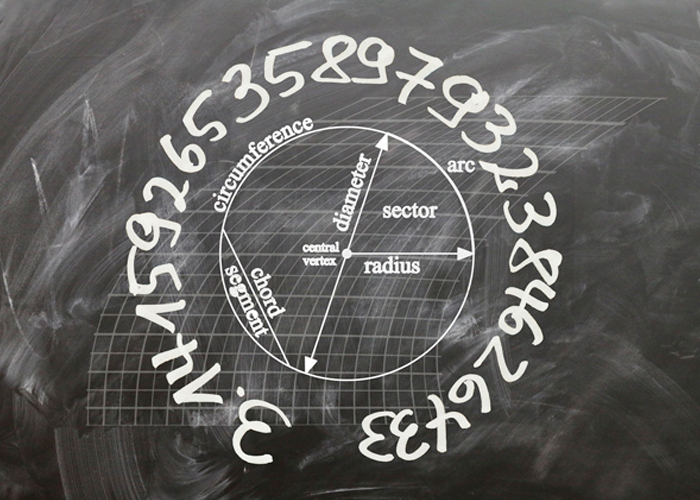 3.1415926535897932384626433
circumference
diameter
arc
sector
central
vertex
radius
chord
segment